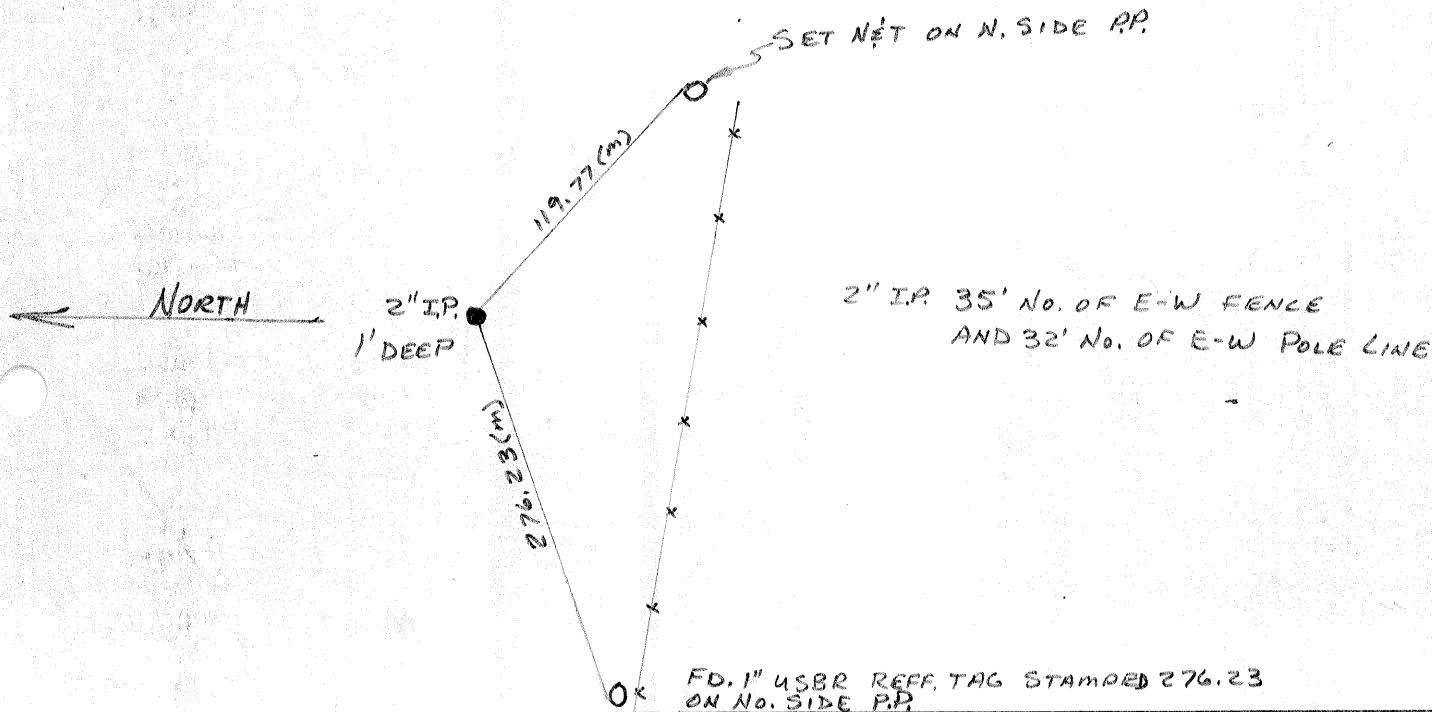 SET N&T ON N. SIDE P.P.
119.77 (m)
NORTH
2" I.P.
1' DEEP
2" I.P. 35' No. OF E-W FENCE
AND 32' No. OF E-W POLE LINE
276.23 (m)
FD. 1" USBR REFF. TAG STAMPED 276.23
ON No. SIDE P.P.